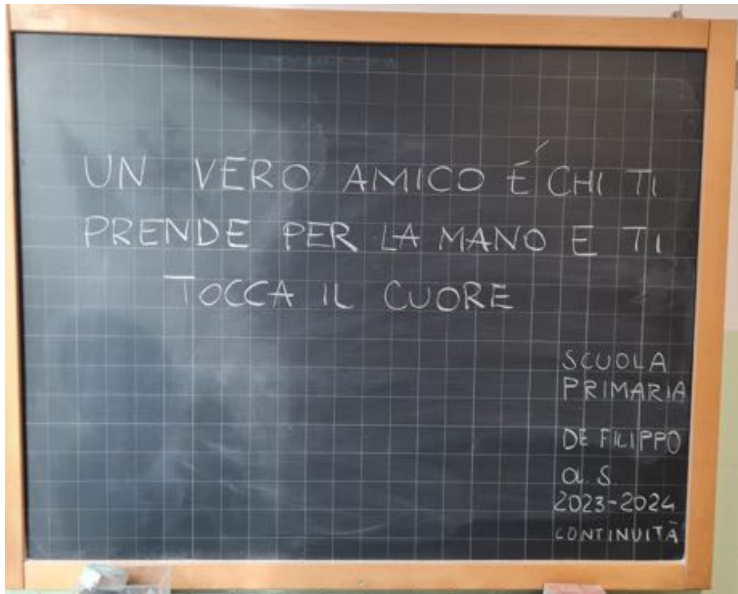 UN VERO AMICO É CHI TI
PRENDE PER LA MANO E TI
TOCCA IL CUORE
SCUOLA
PRIMARIA
DE FILIPPO
a. S.
2023-2024
CONTINUITÀ